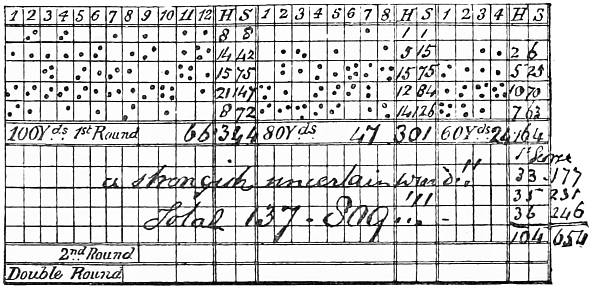 1 2 3 4 5 6 7 8 9 10 11 12 H S 1 2 3 4 5 6 7 8 H S 1 2 3 4 H S
8 8 1 1
14 42 5 15 2 6
15 75 15 75 5 25
21 147 12 84 10 70
8 72 14 126 7 63
100Yds 1st Round 66 344 80Yds 47 301 60Yds 24 164
1st Score
a strongish uncertain wind!! 33 177
35 231
Total 137 - 809 ... - 36 246
104 654
2nd Round
Double Round